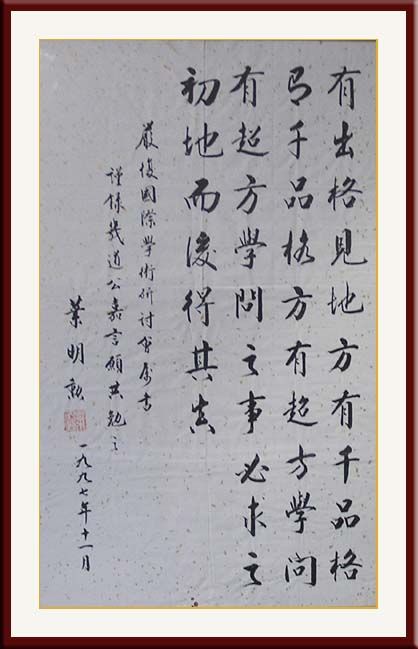 有出格見地方有千品格
有千品格方有超方學問
有超方學問之事必求之
初地而後得其真
嚴復國際學術研討會屬書
謹錄幾道公嘉言願共勉之
葉明勳
一九九七年十一月